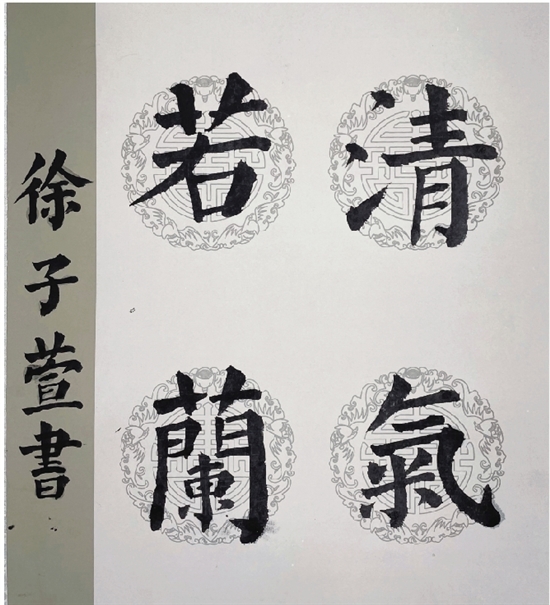 清氣
若蘭
徐子萱書